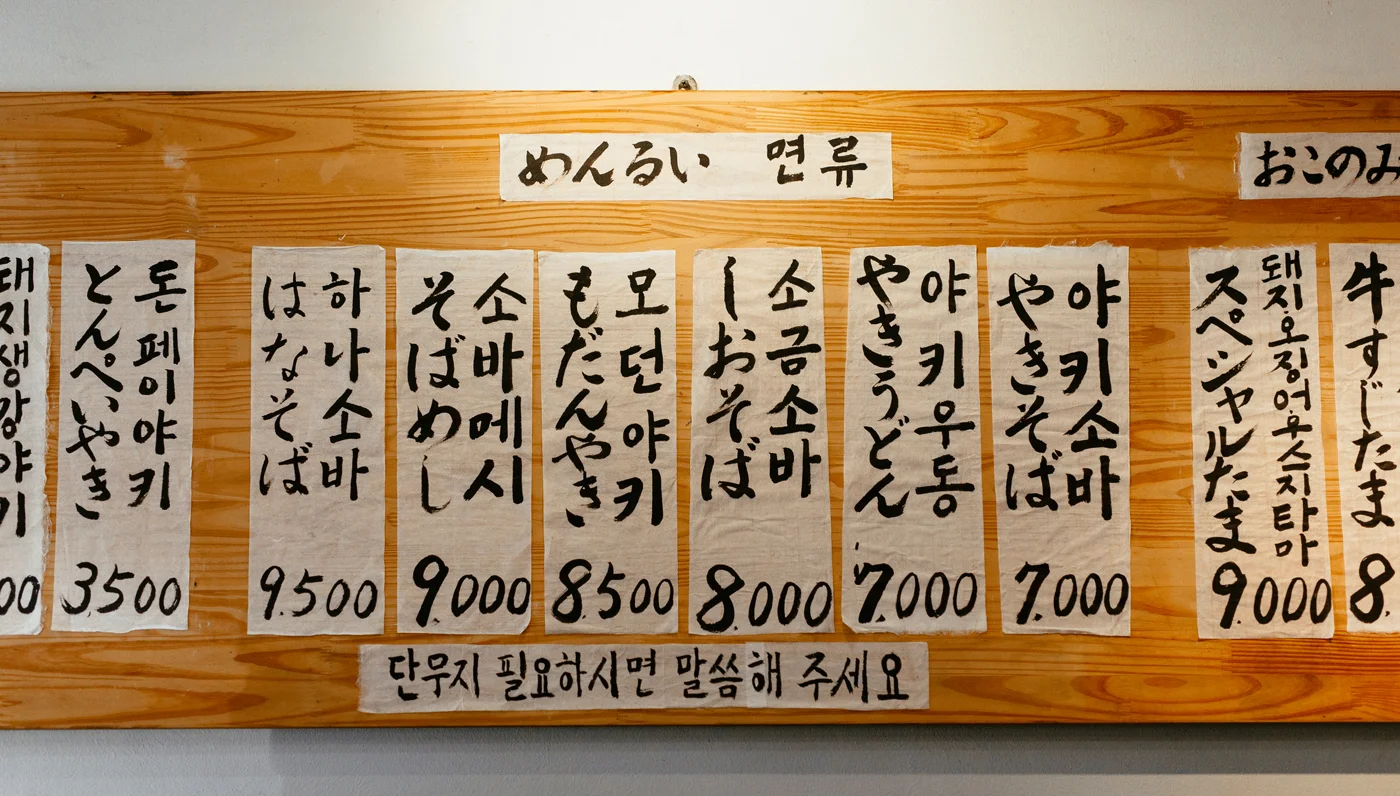 めんるい 면류
おこのみ
돼지생강야키
00
とんぺいやき
돈페이야키
3.500
はなそば
하나소바
9.500
そばめし
소바메시
9.000
もだんやき
모던야키
8.500
しおそば
소금소바
8.000
やきうどん
야키우동
7.000
やきそば
야키소바
7.000
スペシャルたま
돼지.오징어.우스지타마
9.000
牛すじたま
8.
단무지 필요하시면 말씀해 주세요